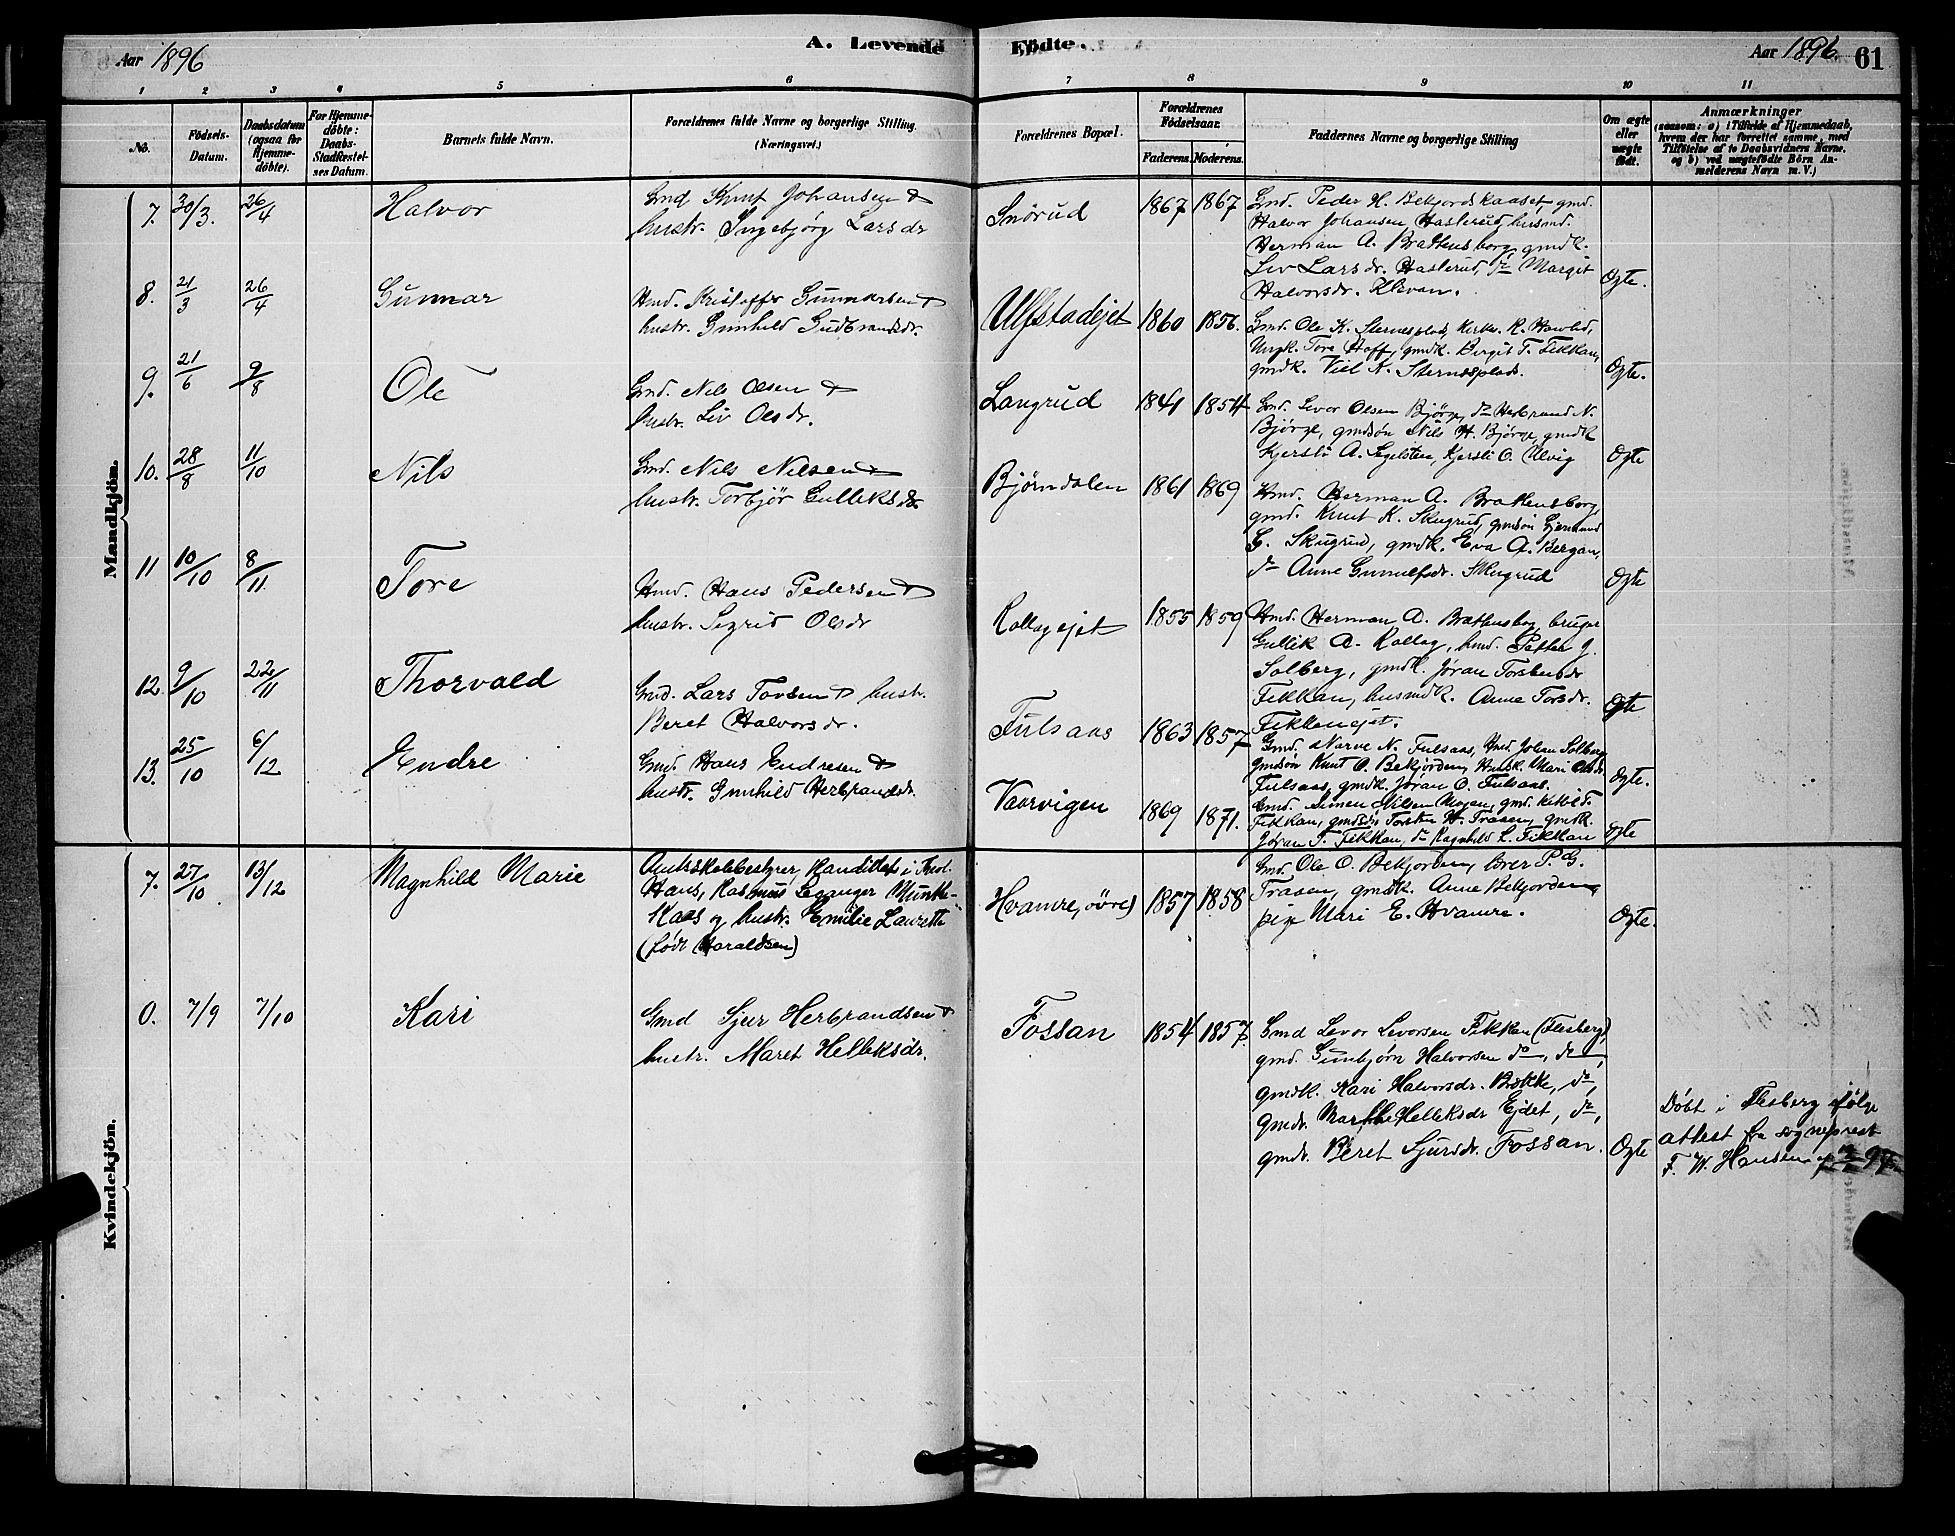 Aar 1896
A. Levende Födte.
Aar 1896. 61
1 2 3 4 5 6 7 8 9 10 11
No.
Födsels-Datum.
Daabsdatum (ogsaa for Hjemme-döbte).
For Hjemme-döbte: Daabs-Stadfæstel-ses Datum.
Barnets fulde Navn.
Forældrenes fulde Navne og borgerlige Stilling.
(Næringsvei.)
Forældrenes Bopæl.
Forældrenes Födselsaar.
Faderens. Moderens.
Faddernes Navne og borgerlige Stilling
Om ægte eller uægte födt.
Anmærkninger
(saasom: a) i Tilfælde af Hjemmedaab,
hvem der har forrettet samme, med
Tilföielse af to Daabsvidners Navne,
og b) ved uægtefödte Börn An-
melderens Navn m. V.)
Mandkjön.
7. 30/3. 26/4 Halvor
Gmd Knut Johansen &
hustr. Ingebjørg Larsdr
Snörud 1867 1867
Gmd. Peder H. Bekjordskaaset, gmd.
Halvor Johansen Haslerud, husmd.
Herman A. Brattensborg, gmdk.
Liv Larsdr. Haslerud, do Margit
Halvorsdr. Kleven.
Ogte.
8. 21/3 26/4 Gunnar
Hmd. Kristoffer Gunnarsen &
hustr. Gunhild Gudbrandsdr.
Ulfstadejet 1860 1856.
Gmd. Ole K. Sternesplads, Kirkes. K.
Ungk. Tore Hoff, gmdk. Birgit T. Fikkan,
gmdk. K. Sternesplads.
Ogte.
9. 21/6 9/8 Ole
Gmd. Nils Olsen &
hustr. Liv Olsdr.
Langrud 1841 1854
Gmd. Levor Olsen Bjørge, do Herbrand N.
Bjørge, gmdsön Nils H. Bjørge, gmdk
Kjersti A. Kjersti O. Ulvig
Ogte
10. 28/8 11/10 Nils
Gmd. Nils Nilsen &
hustr. Torbjör Gulleksdr.
Bjørndalen 1861 1869
Hmd. Herman A. Brattensborg,
gmd. Knut K. Skugrud, gmdsön
G. Skugrud, gmdk. Eva A. Bergan,
do Anne Gunnulfsdr. Skugrud
Ogte
11 10/10 8/11. Tore
Hmd. Hans Pedersen &
hustr. Sigrid Olsdr
Rollagejet 1855 1859
Hmd. Herman A. Brattensborg, bruger
Gullik A. Rollag, hmd. Petter J.
Solberg, gmdk. Jøran Torstensdr
Fikkan, husmdk. Anne Torsdr.
Fikkanejet.
Ogte
12. 9/10 22/11 Thorvald
Gmd. Lars Torsen & hustr.
Beret Halvorsdr.
Fulsaas 1863 1857
Gmd. Narve N. Fulsaas, Hmd. Johan Solberg
gmdsön Knut O. Bekjorden, Hmdk. Mari Olsdr
Fulsaas, gmdk. Jøran O. Fulsaas.
Ogte.
13. 25/10 6/12 Endre
Gmd. Hans Endresen &
hustr. Gunhild Herbrandsdr.
Vaarvigen 1869 1871.
Gmd. Simen Nilsen Moen, gmd. Ketil T.
Fikkan, gmdsön Torsten H. Traaen, gmdk.
Jøran T. Fikkan, do Ragnhild L. Fikkan
Ogte
Kvindekjön.
7. 27/10 13/12 Magnhild Marie
Amtsskolebestyrer, Kandidat i Theol.
Hans, Rasmus Leganger Munthe-
Kaas og hustr. Emilie Laurette
(født Haraldsen)
Hvamre, øvre) 1857 1858
Gmd. Ole O. Bekjorden, P. G.
Traaen, gmdk. Anne Bekjorden,
pige Mari E. Hvamre.
Ogte.
0. 7/9 7/10 Kari
Gmd Sjur Herbrandsen &
hustr. Maret Helleksdr.
Fossan 1854 1857.
Gmd Levor Levorsen Fikkan (Flesberg),
gmd. Gunbjörn Halvorsen do, do,
gmdk. Kari Halvorsdr. Brække, do,
gmdr. Marthe Helleksdr Ejdet, do,
gmdr. Beret Sjursdr. Fossan.
Ogte
Döbt i Flesberg ifølge
attest fra sogneprest
F. W. Hansen af